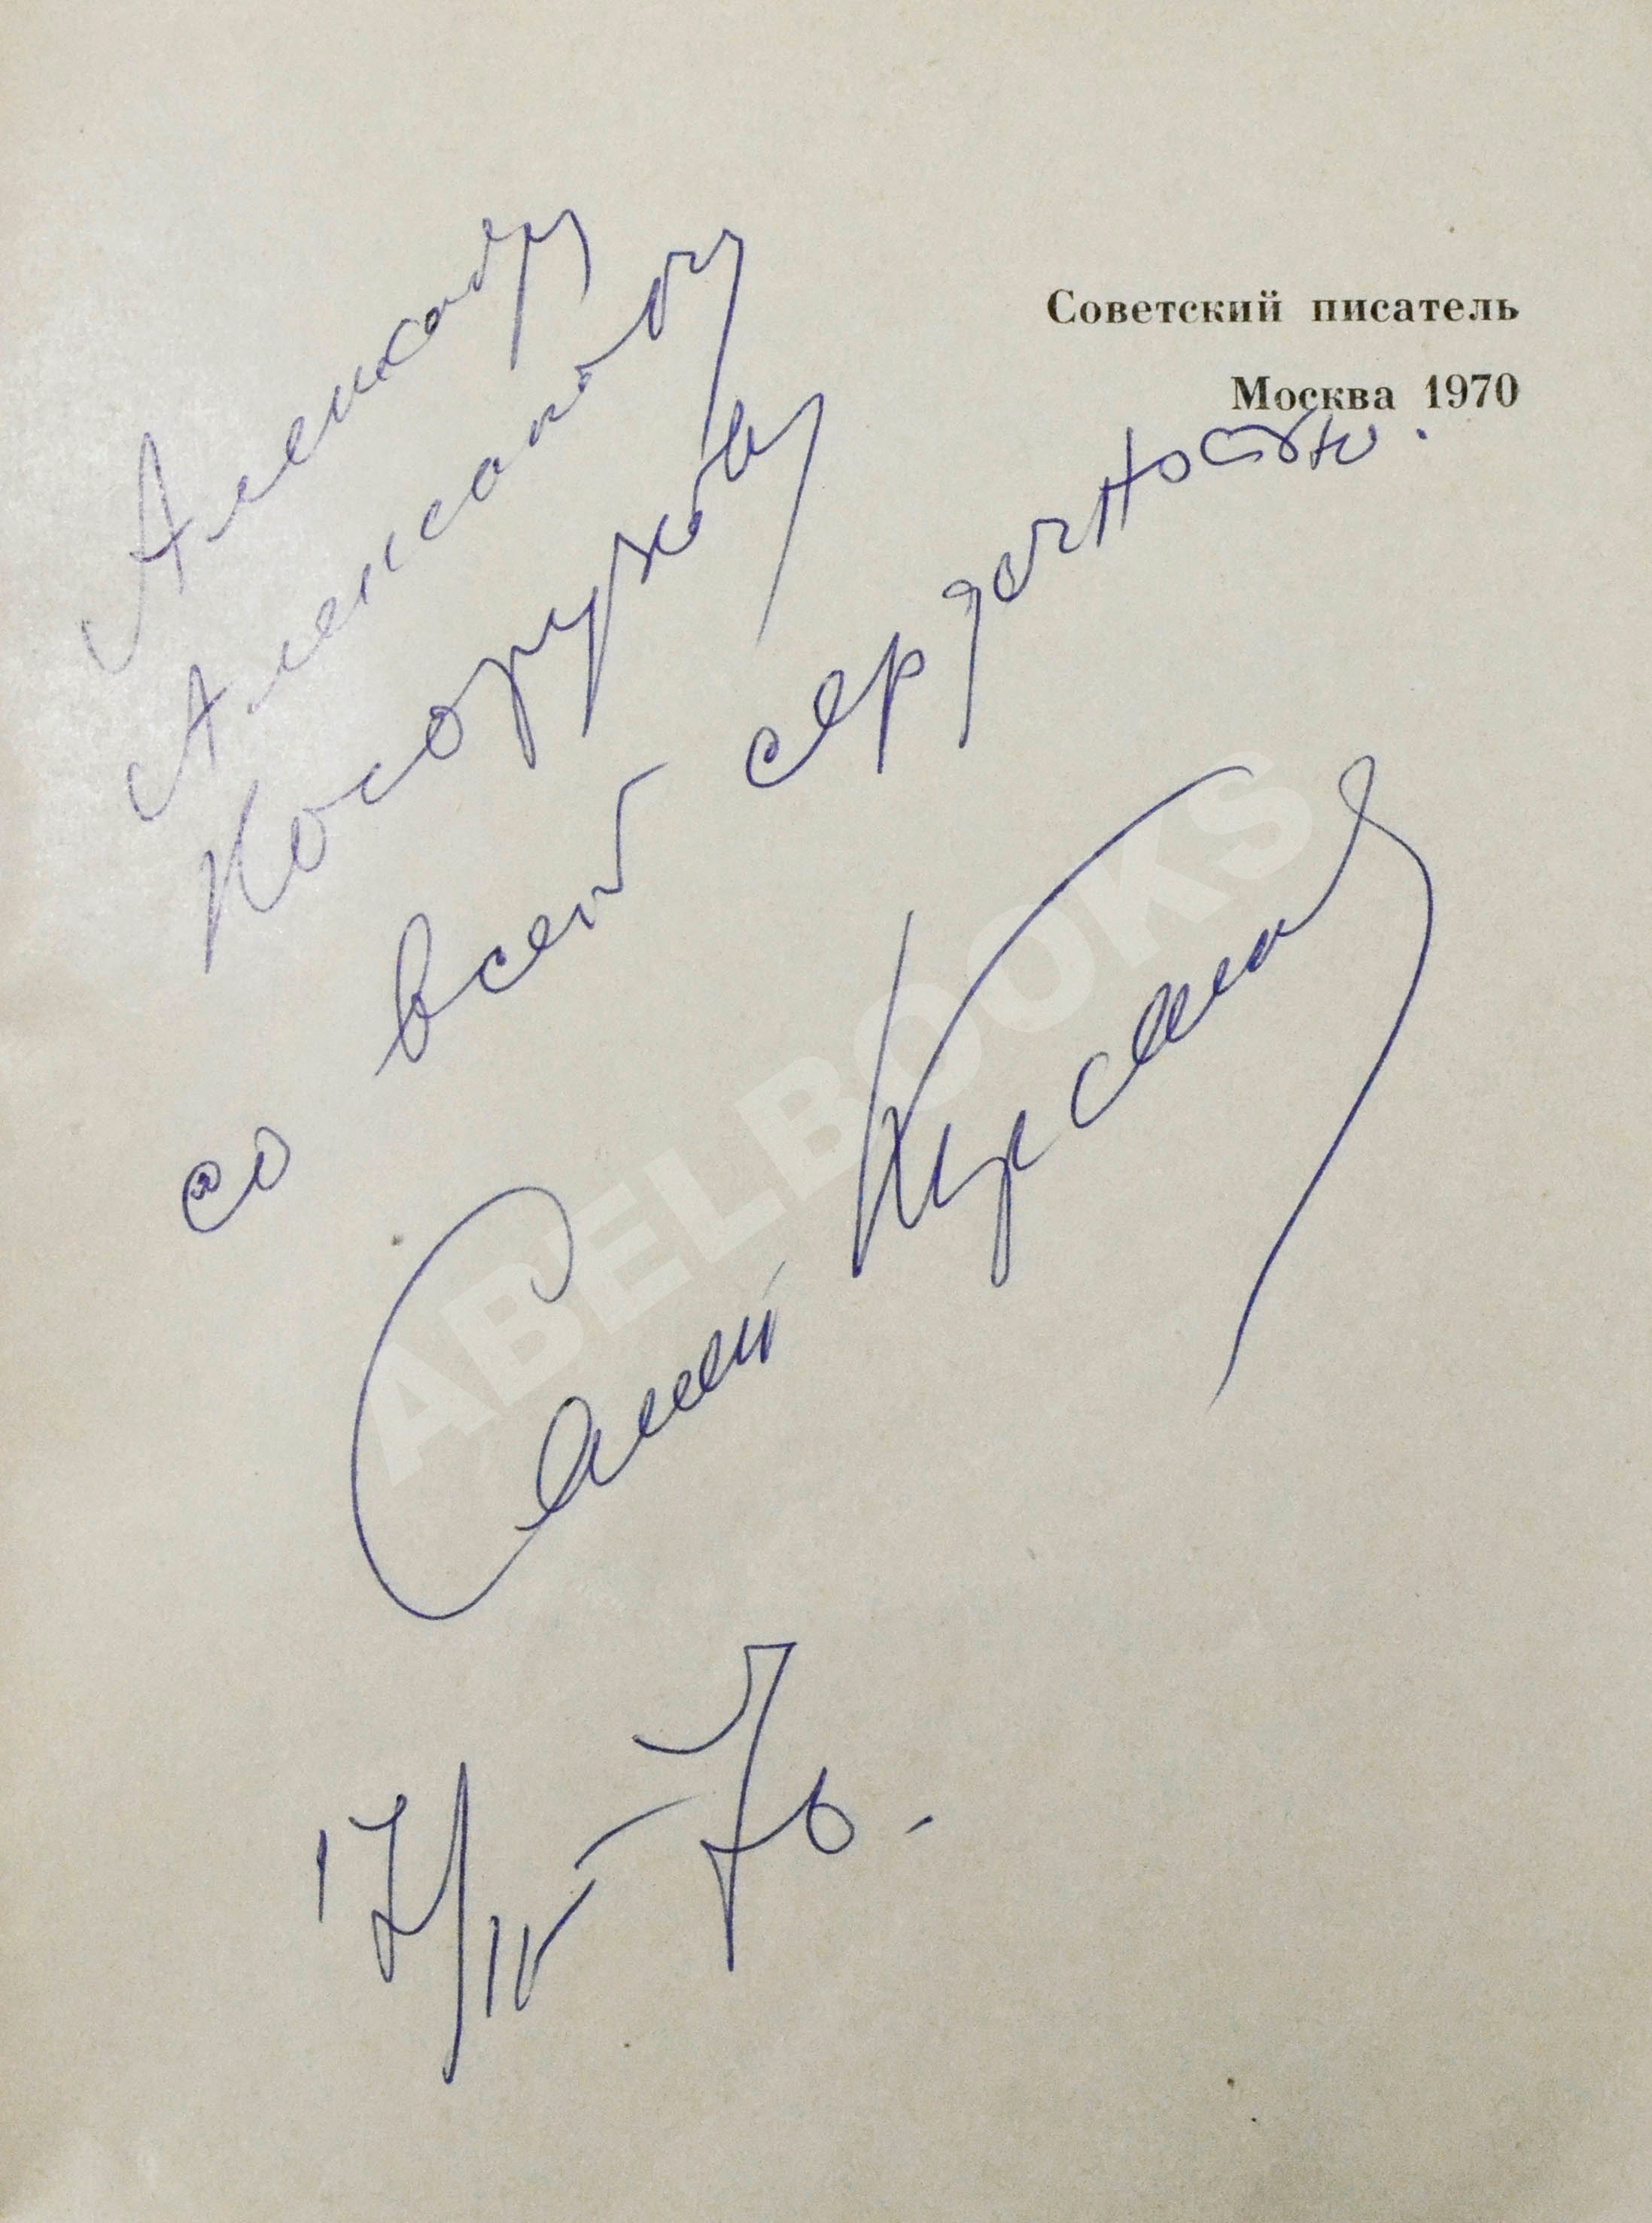 Советский писатель
Москва 1970
Александру
Александровичу
Косорукову
со всей сердечностью.
Семен Кирсанов
17/IV 70.
ABELBOOKS